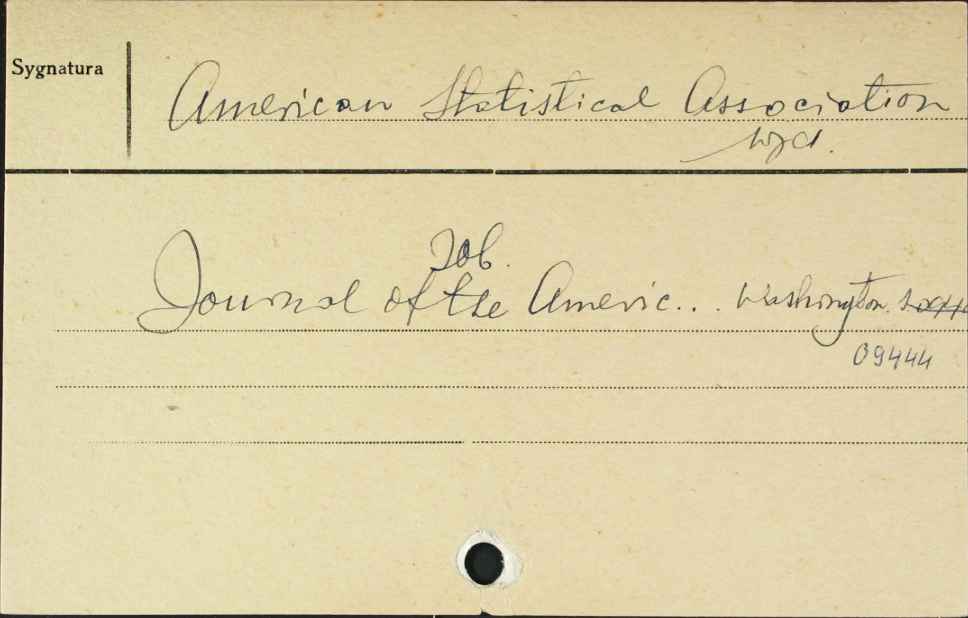 Sygnatura
American Statistical Association
wyd.
zob.
Journal of the Americ... Washington.
09444